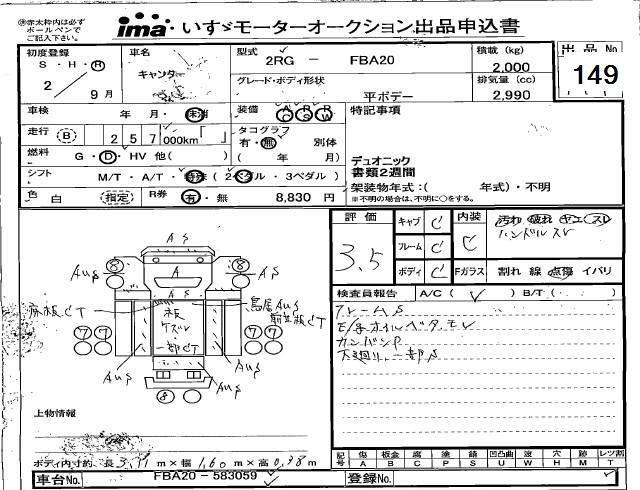 ㊟赤太枠内は必ず
ボールペンで
ご記入下さい。
ima いすゞモーターオークション出品申込書
初度登録
S・H・R
2 9月
車名
キャンター
型式
2RG - FBA20
積載 (kg)
2,000
出品No
149
グレード・ボディ形状
平ボデー
排気量 (cc)
2,990
車検 年 月・未・済
装備 AC PS PW
特記事項
走行 B 257,000km「 」
タコグラフ
有・無 別体
( 年 月)
燃料 G・D・HV 他( )
デュオニック
書類2週間
シフト M/T・A/T・特殊(2ペダル・3ペダル)
架装物年式:( 年式)・不明
※不明の場合は、不明に○をする。
色 白 (指定) R券 有・無 8,830 円
評価
3.5
キャブ C
フレーム C
ボディ C
内装
C
汚れ 破れ ヤニ スレ
ハンドルスレ
Fガラス 割れ 線 点傷 イバリ
検査員報告 A/C( ) B/T( )
フレームS
E/gオイルベタ、モレ
カンバンP
下廻り、一部S
AS
8 8
A
AuS AuS
床板CT
鳥居AuS
床板
ケズレ
一部CT
7 7 7 7
AuS AuS
8
上物情報
ボディ内寸約 長 3.11 m×幅 1.60 m×高 0.38 m
車台No. FBA20 - 583059
記号 傷 A 板金 B 腐 C 塗 P 錆 S 凹凸曲 U 波 W 穴 H 跡 M レツ割 T
登録No.